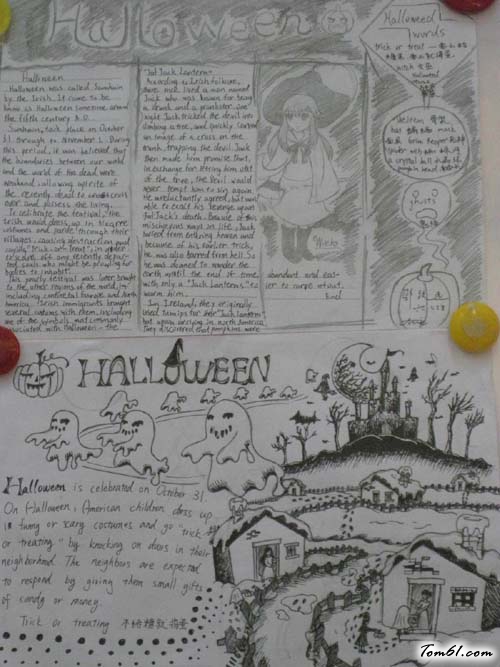 Halloween
Halloween
Halloween was called Samhain
by the Irish. It came to be
know as Halloween sometime around
the fifth century A.D.
Samhain, took place on October
31 through to November 1. During
this period, it was believed that
the boundaries between our world
and the world of the dead were
weakened, allowing spirits of
the recently dead to cross
over and possess the living.
To celebrate the festival, the
Irish would dress up in bizarre
costumes and parade through their
villages, causing destruction and
in order
to scare off any recently departed
souls who might be prowling for
bodies to inhabit.
This pagan festival was later brought
to the other regions of the world, in
including continental Europe and North
America. Irish immigrants brought
several customs with them, including
one of the symbols most commonly
associated with Halloween - the
Jack Lantern
According to Irish folklore,
there once lived a man named
Jack who was known for being
a drunk and a prankster. One
night Jack tricked the devil into
climbing a tree, and quickly carved
an image of a cross on the
trunk, trapping the devil. Jack
then made him promise that,
in exchange for letting him out
of the tree, the Devil would
never tempt him to sin again.
He reluctantly agreed, but was
able to exact his revenge upon
Jack's death. Because of his
mischievous ways in life, Jack
barred from entering heaven and
because of his earlier trick,
he was also barred from hell. So
he was doomed to wander the
earth until the end of time
with only a "Jack Lanterns" to
warm him.
In Ireland, they originally
used turnips for their "Jack Lantern",
but upon arriving in north America
they discovered that pumpkins were
abundant and easier
to carve
End
words
trick or treat
pumpkin
HALLOWEEN
Halloween is celebrated on October 31.
On Halloween, American children dress up
in funny or scary costumes and go "trick
or treating" by knocking on doors in their
neighborhood. The neighbors are expected
to respond by giving them small gifts
of candy or money.
Trick or treating 不给糖就捣蛋
Tom61.com